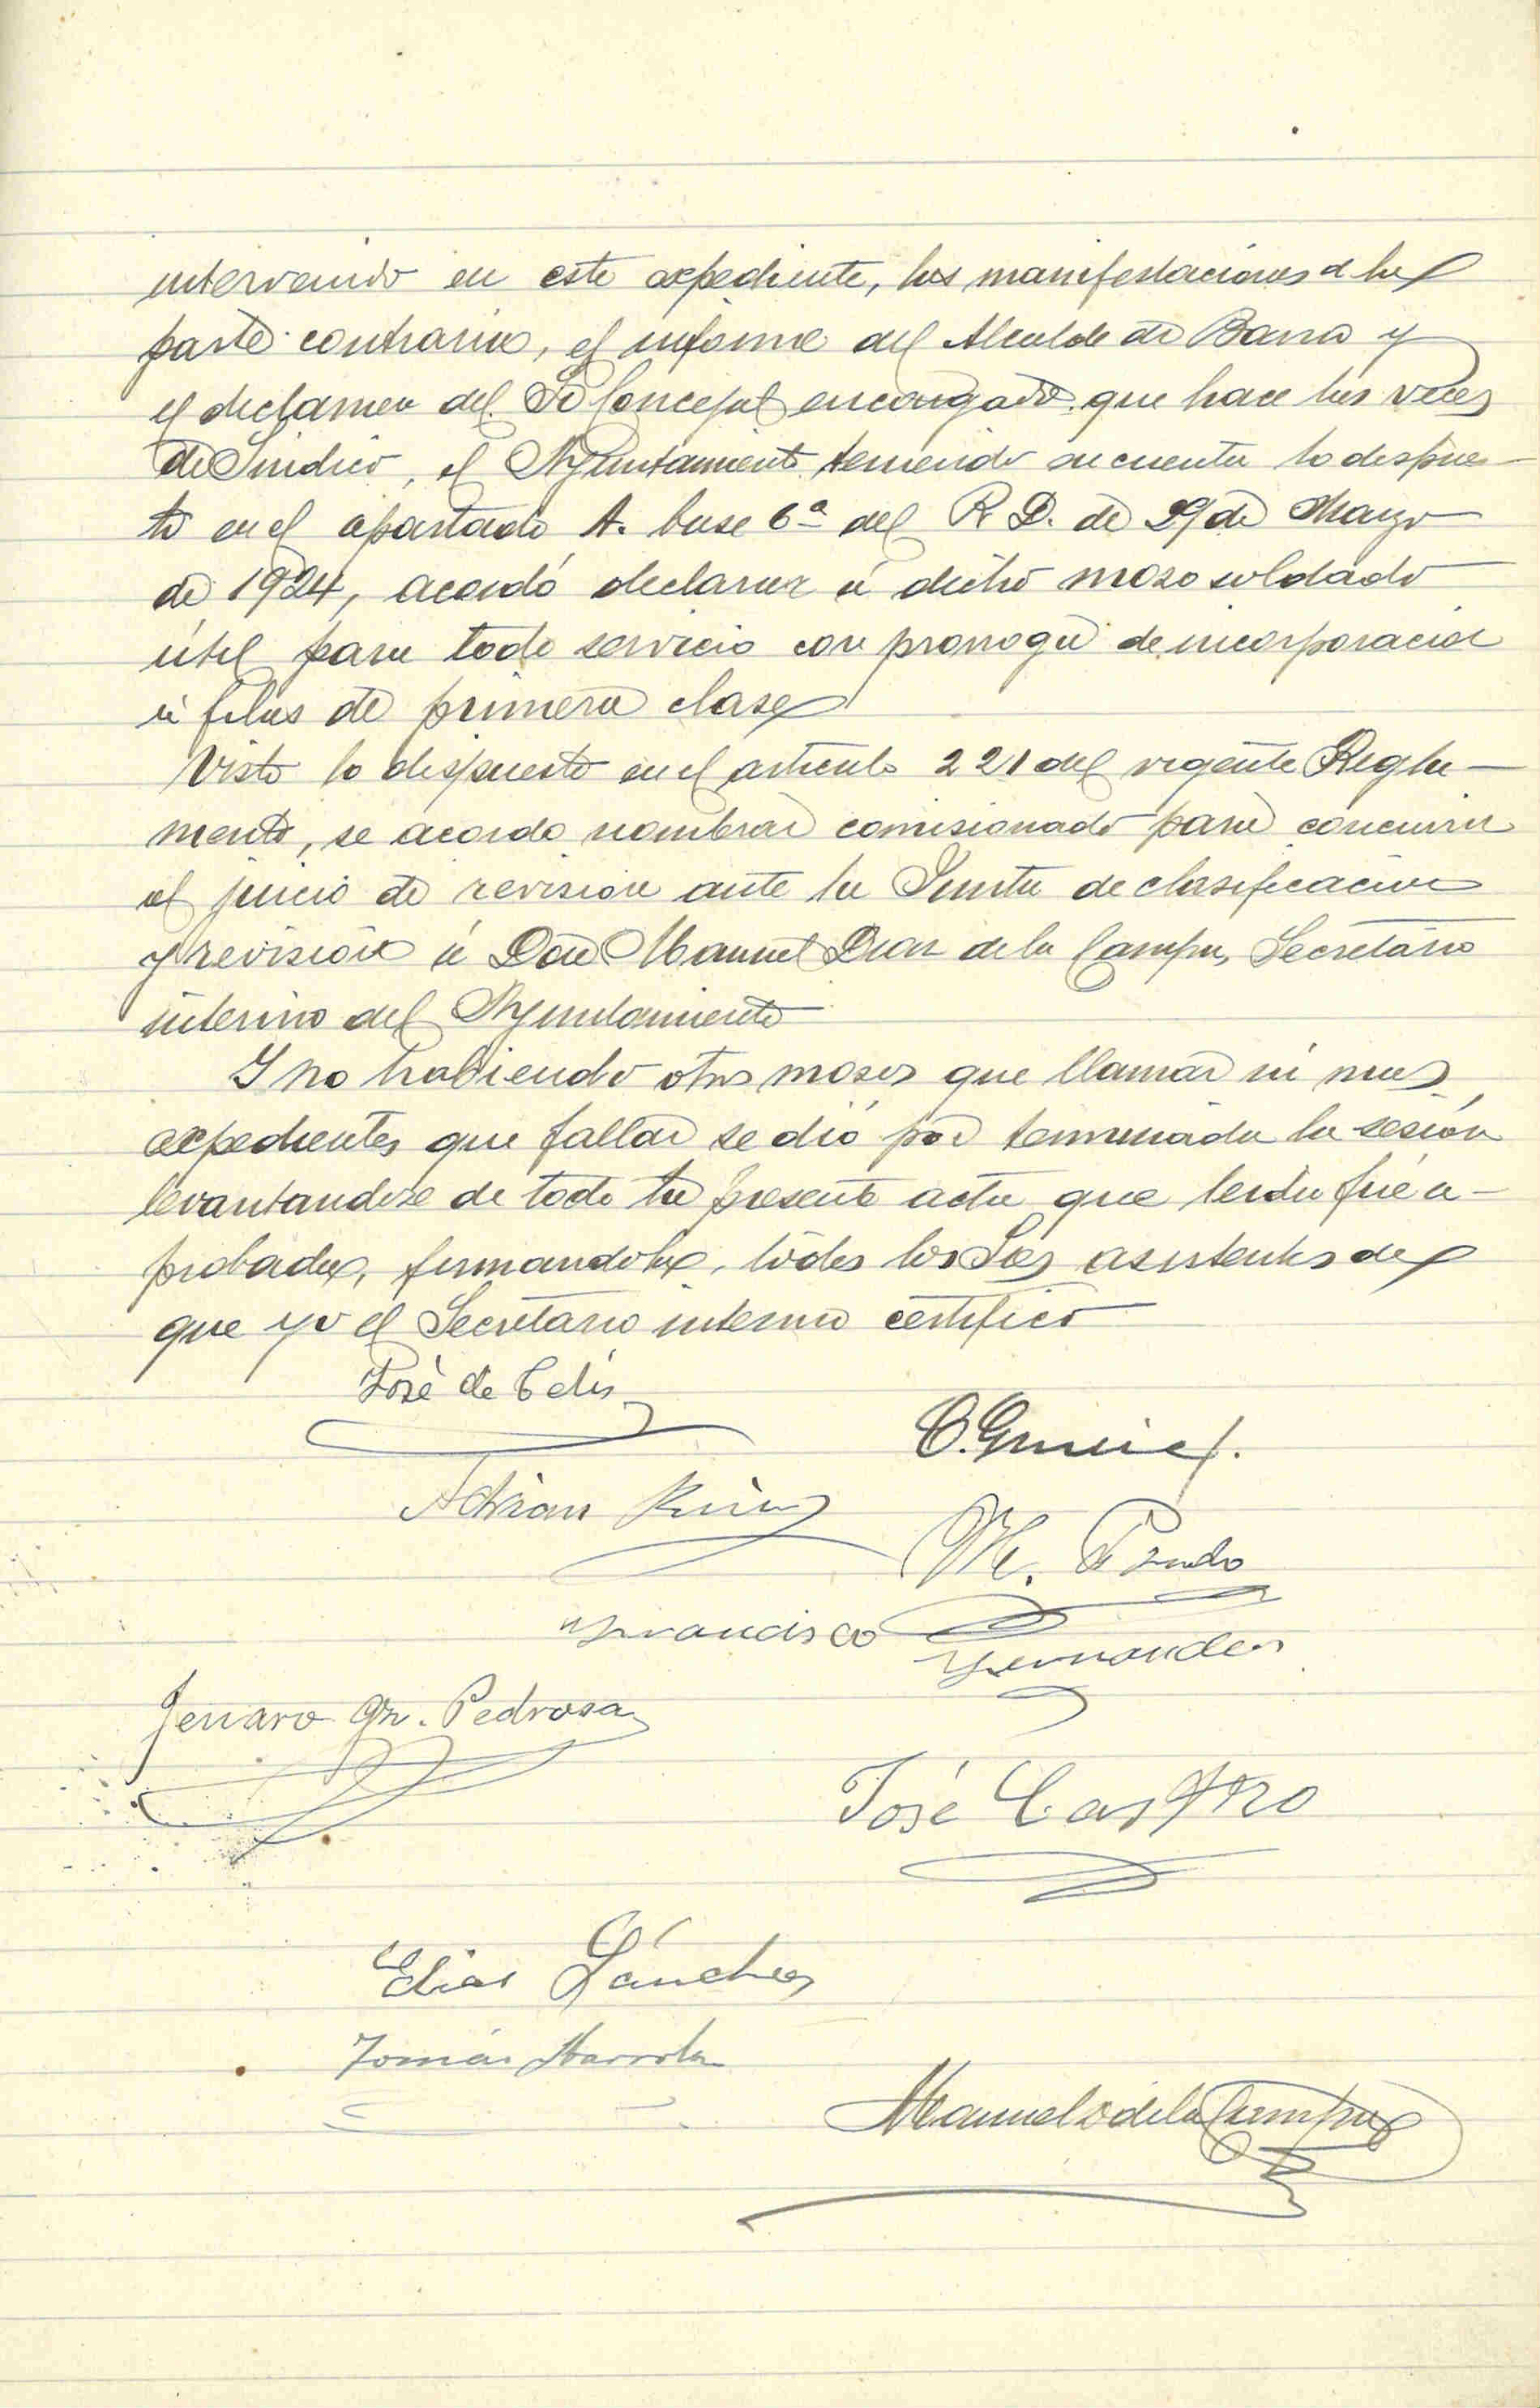 intervenido en este expediente, las manifestaciones d la
parte contraria, el informe del Alcalde de Barro y
el dictamen del Sr Concejal encargado que hace las veces
de Sindico, el Ayuntamiento teniendo en cuenta lo dispues-
to en el apartado A. base 6ª del R D. de 29 de Mayo
de 1924, acordó declarar á dicho mozo soldado
útil para todo servicio con prorroga de incorporación
á filas de primera clase
Visto lo dispuesto en el articulo 221 del vigente Regla-
mento, se acordo nombrar comisionado para concurrir
al juicio de revision ante la Junta de clasificación
y revisión á Don Manuel Diaz de la Campa, Secretario
interino del Ayuntamiento
Y no habiendo otros mozos que llamar ni mas
expedientes que fallar se dió por terminada la sesión
levantandose de todo la presente acta que leida fué a-
probada, firmandola, todos los Sres asistentes de
que yo el Secretario interino certifico
José de Celis
Adrian
M. Pando
Francisco Fernandez
Jenaro Gz. Pedrosa
José Castro
Elias Sánchez
Tomás
Manuel D de la Campa